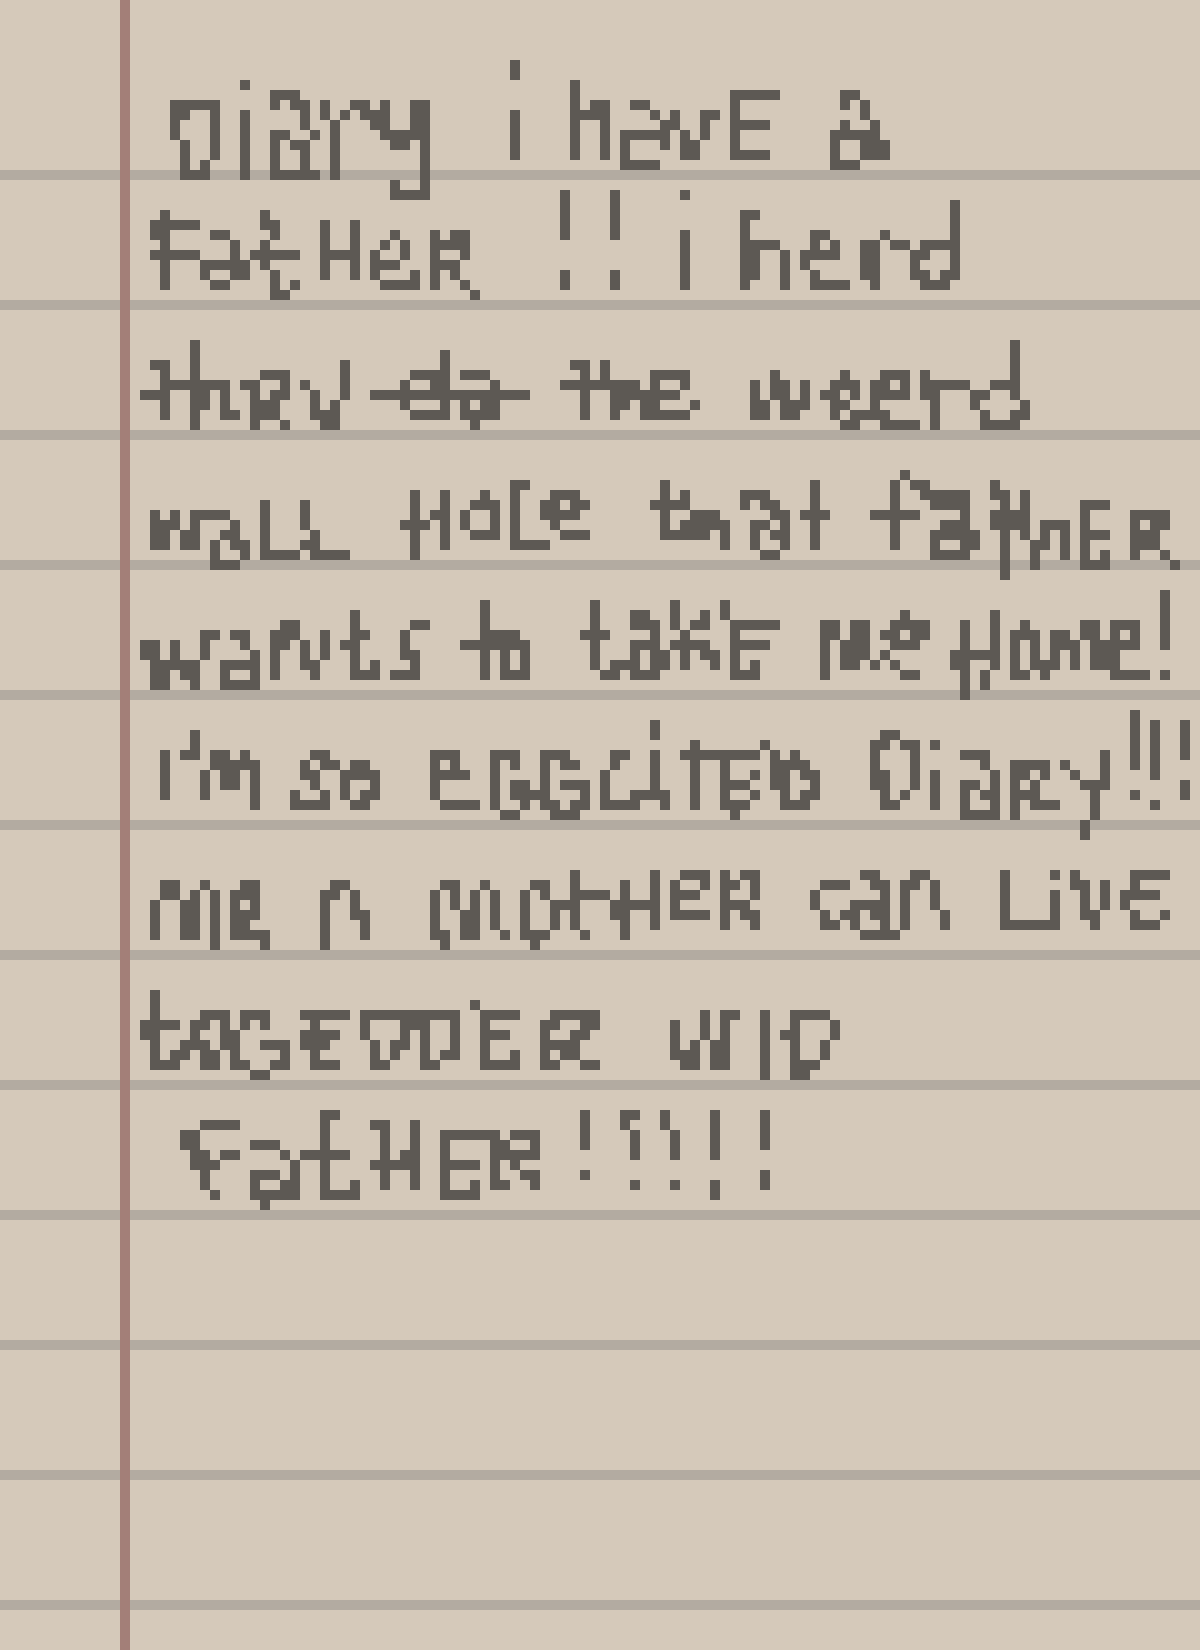 Diary i havE a
FatHeR !! i herd
thrv da the weerd
waLL HoLe that fatHER
wants to takE me Home!
I'm so eGGciTED DiaRy!!!
me n motHER can LivE
toGEDDER WID
FatHER !!!!!